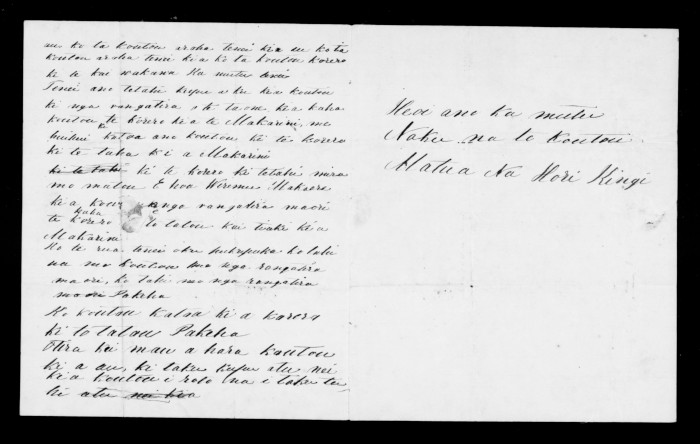 au ko ta koutou roha tenei kia au ko ta
koutou aroha tenei kia ki ta koutou korero
ki te kai wakawa Ka mutu tenei
Tenei ano tetahi kupu a ku kia koutou
ki nga rangatira o te taone kia kaha
koutou te korero kia te Makarini, me
huihui katoa ano koutou ki te korero
ki to taha ki a Makarini
ki te tahi ki te korero ki tetahi
mo matou E hoa Wiremu Makaore
kia koutou nga rangatira maori
kaha
te korero to tatou kai tiaki kia
Makarini
Ko te rua tenei oku pukapuka ko tahi
na mo koutou mo nga rangatira
maori, ko tahi mo nga rangatira
Pakeha
Ko koutou katoa kia korero
ki to tatou Pakeha
Otira kei mau a hara koutou
ki a au, ki taku kupu atu nei
kia koutou i roto na i taku tu
hi atu nei kia
Heoi ano ka mutu
Naku na to koutou
Matua Na Hori Kingi